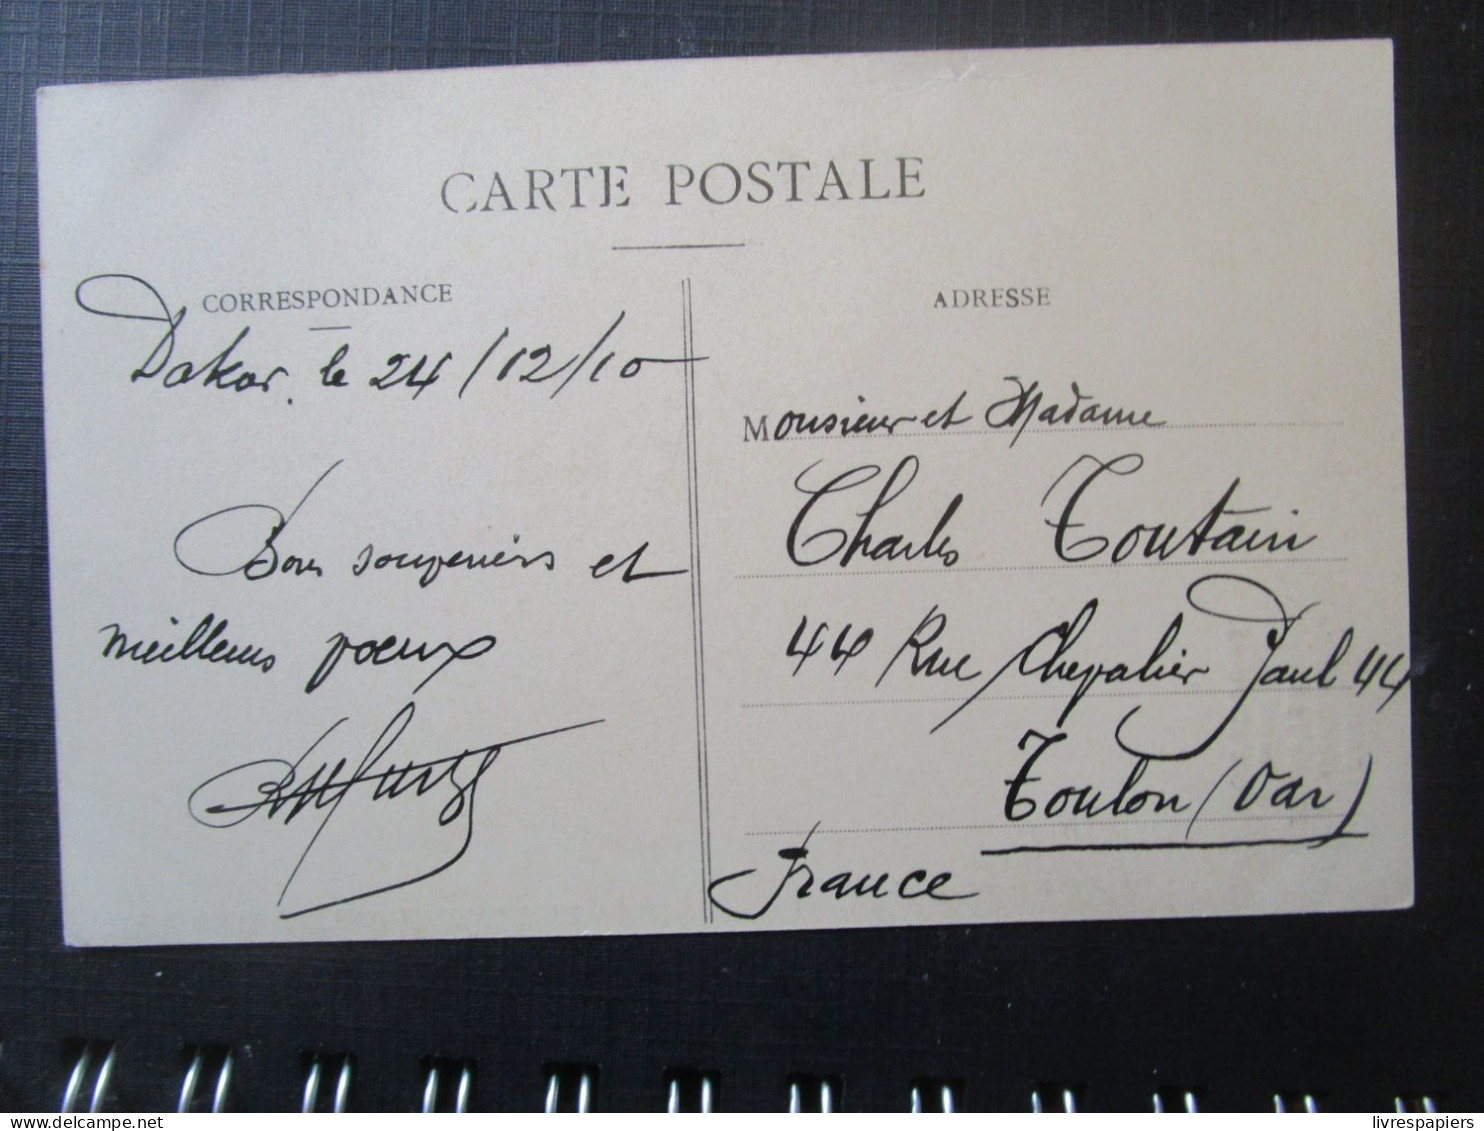 CARTE POSTALE
CORRESPONDANCE
Dakar. le 24/12/10
Bons souvenirs et
meilleurs voeux
ADRESSE
Monsieur et Madame
Charles Toutain
44 Rue Chevalier Paul 44
Toulon (Var)
France
livrespapiers